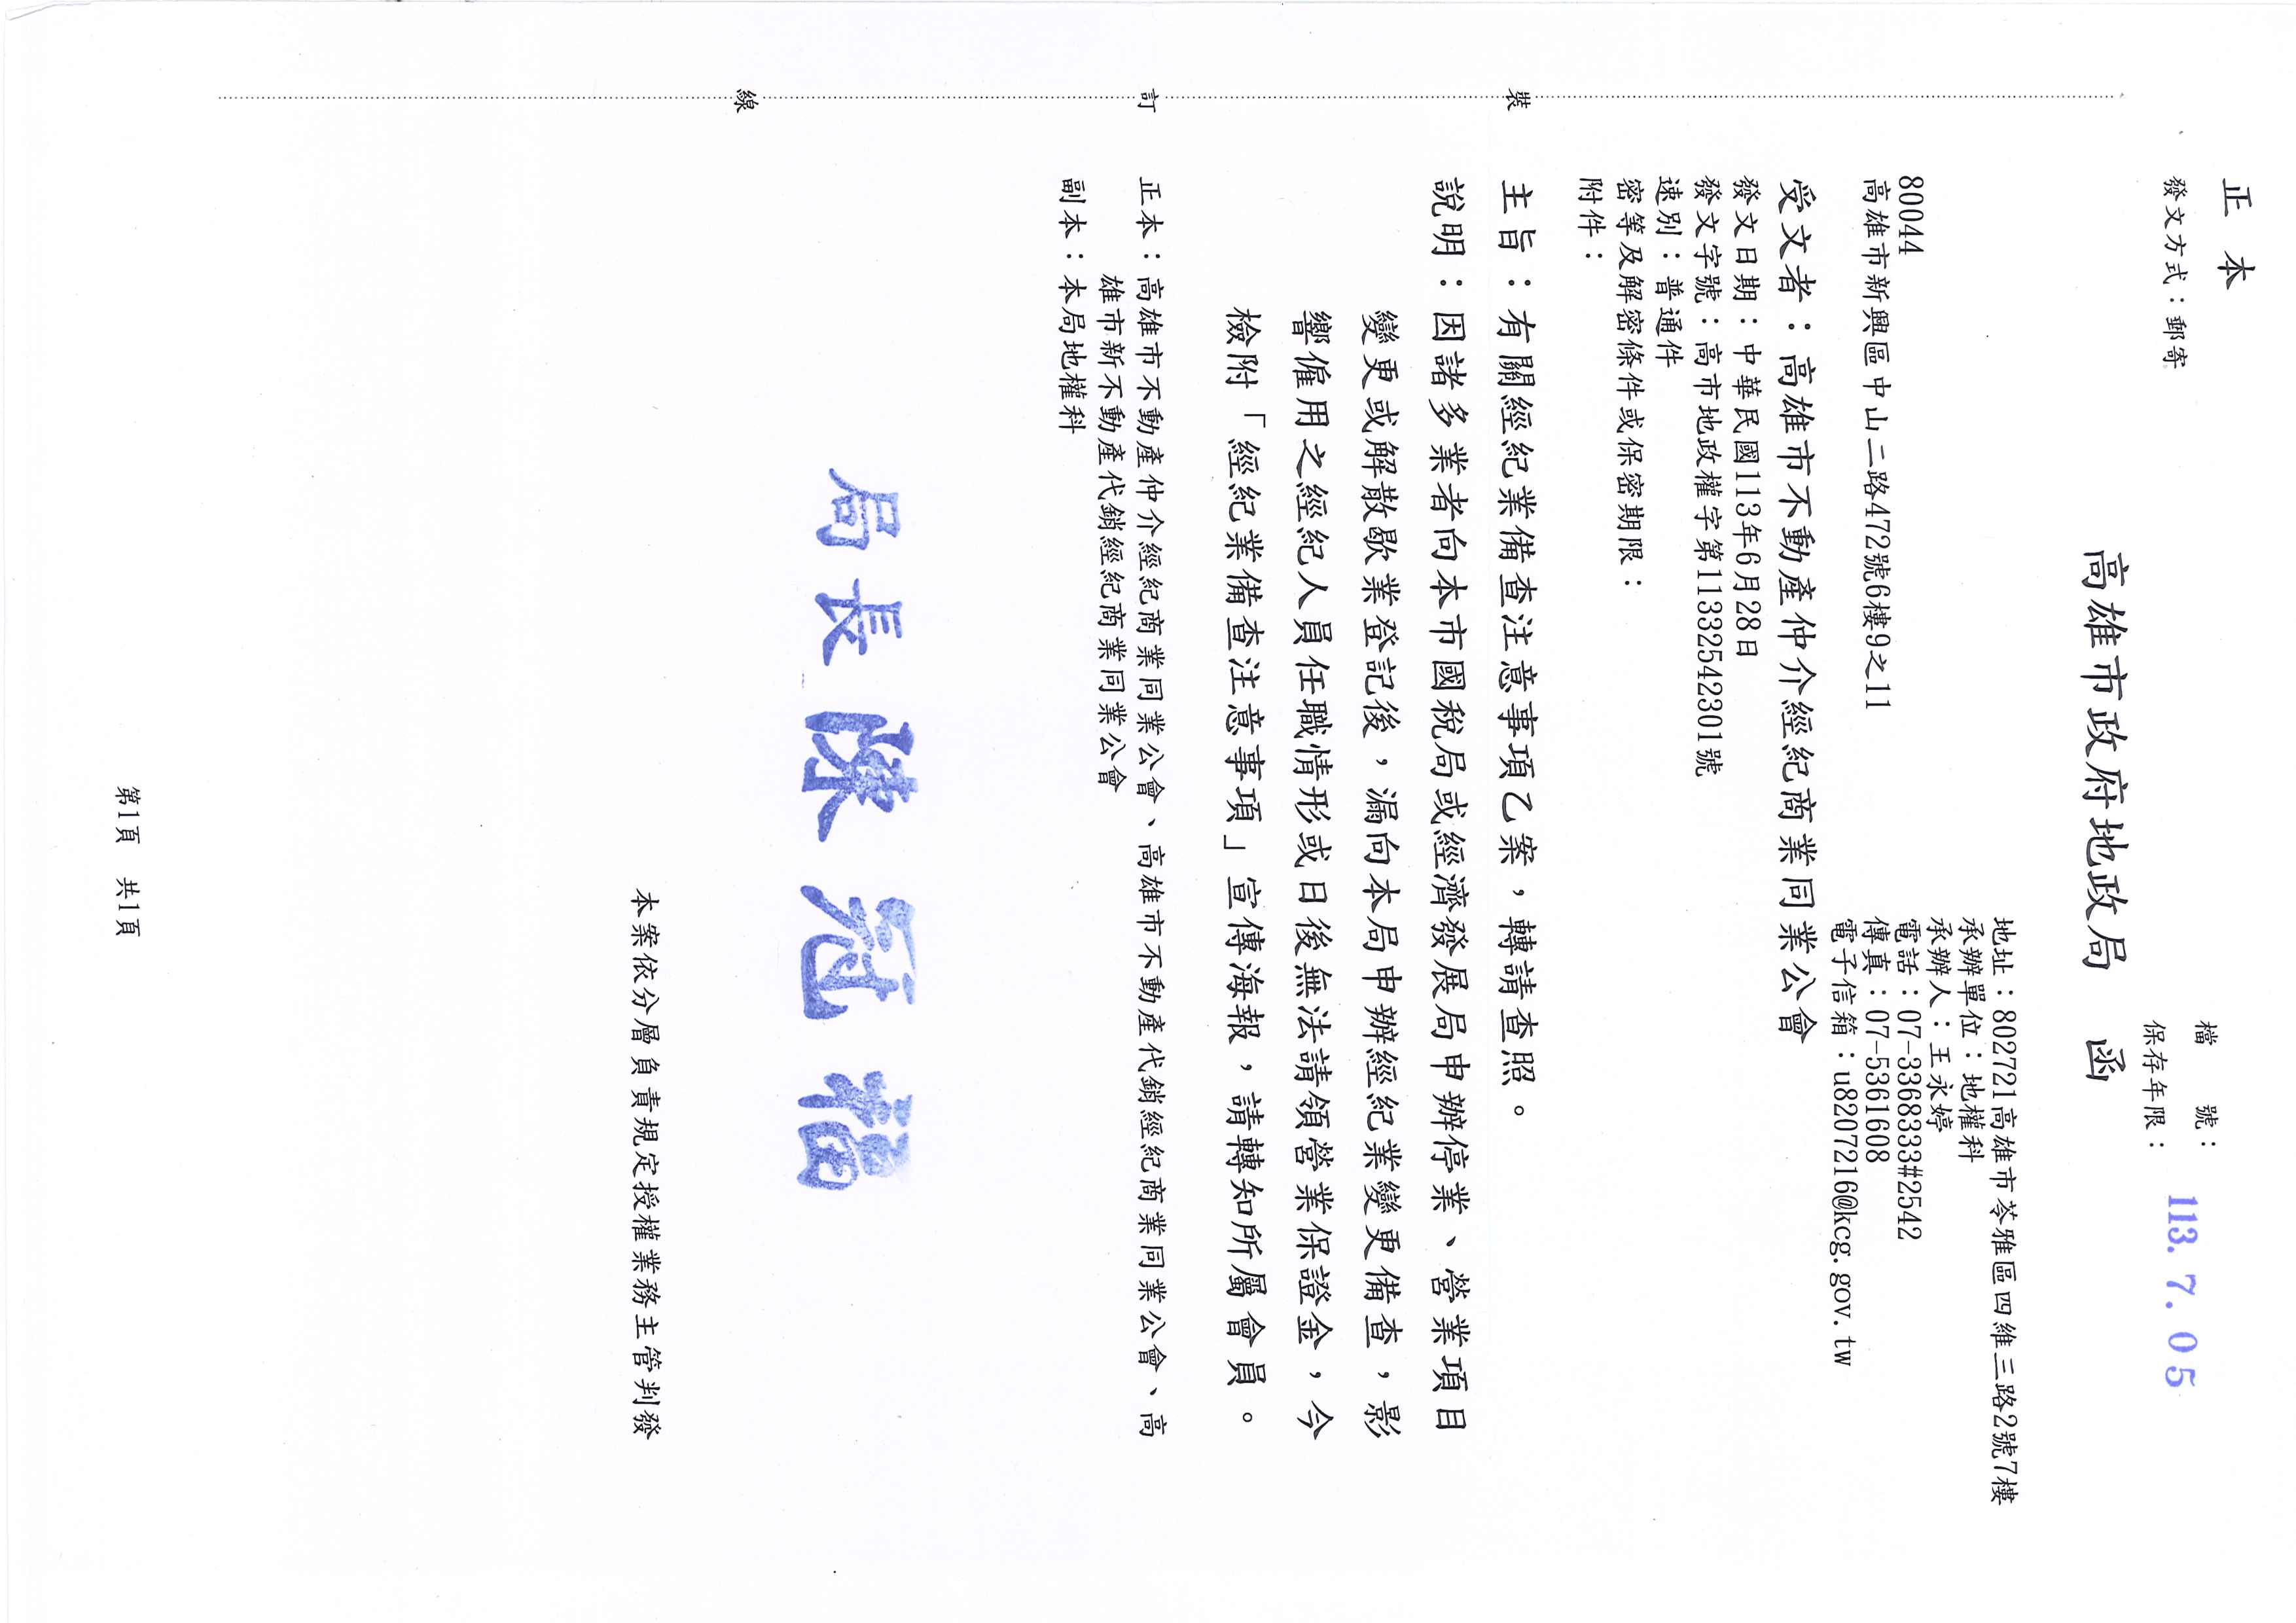 正本
發文方式：郵寄
檔　　號：
保存年限：
113. 7. 05
高雄市政府地政局　函
地址：802721高雄市苓雅區四維三路2號7樓
承辦單位：地權科
承辦人：王永婷
電話：07-3368333#2542
傳真：07-5361608
電子信箱：u8207216@kcg.gov.tw
80044
高雄市新興區中山二路472號6樓9之11
受文者：高雄市不動產仲介經紀商業同業公會
發文日期：中華民國113年6月28日
發文字號：高市地政權字第11332542301號
速別：普通件
密等及解密條件或保密期限：
附件：
主旨：有關經紀業備查注意事項乙案，轉請查照。
說明：因諸多業者向本市國稅局或經濟發展局申辦停業、營業項目
變更或解散歇業登記後，漏向本局申辦經紀業變更備查，影
響僱用之經紀人員任職情形或日後無法請領營業保證金，今
檢附「經紀業備查注意事項」宣傳海報，請轉知所屬會員。
正本：高雄市不動產仲介經紀商業同業公會、高雄市不動產代銷經紀商業同業公會、高
雄市新不動產代銷經紀商業同業公會
副本：本局地權科
局長陳冠福
本案依分層負責規定授權業務主管判發
裝
訂
線
第1頁　共1頁